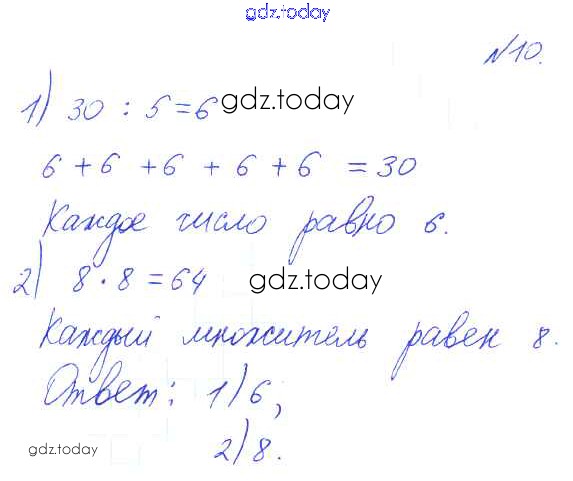 gdz.today
№10.
1) 30 : 5 = 6 gdz.today
6 + 6 + 6 + 6 + 6 = 30
Каждое число равно 6.
2) 8 · 8 = 64 gdz.today
Каждый множитель равен 8.
Ответ: 1) 6;
gdz.today 2) 8.